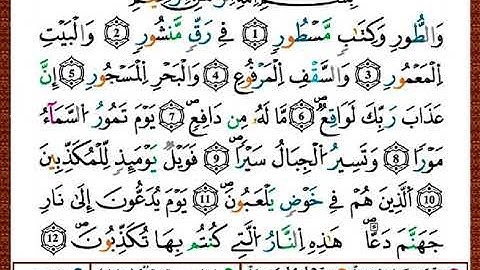 بِسْمِ اللَّهِ الرَّحْمَٰنِ الرَّحِيمِ
وَالطُّورِ وَكِتَٰبٍ مَّسْطُورٍ ١ فِى رَقٍّ مَّنشُورٍ ٢ وَالْبَيْتِ
الْمَعْمُورِ ٣ وَالسَّقْفِ الْمَرْفُوعِ ٤ وَالْبَحْرِ الْمَسْجُورِ ٥ إِنَّ
عَذَابَ رَبِّكَ لَوَاقِعٌ ٦ مَّا لَهُۥ مِن دَافِعٍ ٧ يَوْمَ تَمُورُ السَّمَآءُ
مَوْرًا ٨ وَتَسِيرُ الْجِبَالُ سَيْرًا ٩ فَوَيْلٌ يَوْمَئِذٍ لِّلْمُكَذِّبِينَ
١٠ الَّذِينَ هُمْ فِى خَوْضٍ يَلْعَبُونَ ١١ يَوْمَ يُدَعُّونَ إِلَىٰ نَارِ
جَهَنَّمَ دَعًّا هَٰذِهِ النَّارُ الَّتِى كُنتُم بِهَا تُكَذِّبُونَ ١٢